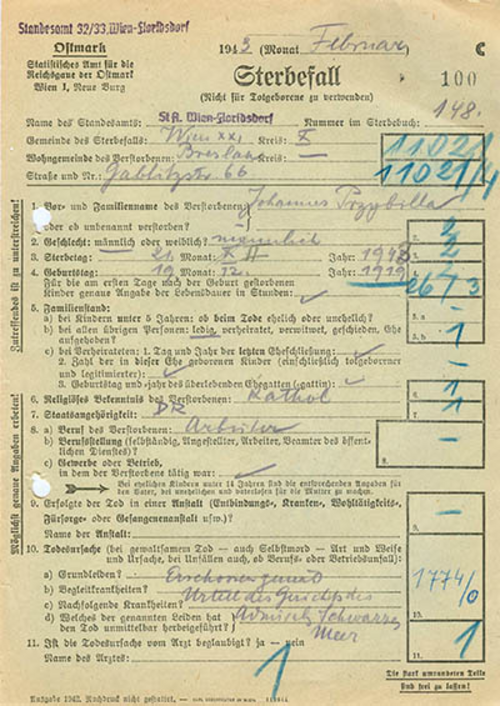 Standesamt 32/33, Wien-Floridsdorf
Ostmark 1943 (Monat Februar) C
Statistisches Amt für die
Reichsgaue der Ostmark
Wien 1, Neue Burg
Sterbefall 100
(Nicht für Totgeborene zu verwenden) 148.
Name des Standesamts: St.A. Wien-Floridsdorf Nummer im Sterbebuch:
Gemeinde des Sterbefalls: Wien XXI Kreis: X 11021
Wohngemeinde des Verstorbenen: Breslau Kreis: — 11021/4
Straße und Nr.: Gablitzstr. 66
Zutreffendes ist zu unterstreichen!
Möglichst genaue Angaben erbeten!
1. Vor- und Familienname des Verstorbenen Johannes Przybilla
oder ob unbenannt verstorben? — 2
2. Geschlecht: männlich oder weiblich? männlich 2
3. Sterbetag: 21 Monat: II Jahr: 1943
4. Geburtstag: 19 Monat: 12. Jahr: 1919
Für die am ersten Tage nach der Geburt gestorbenen
Kinder genaue Angabe der Lebensdauer in Stunden:
5. Familienstand:
a) bei Kindern unter 5 Jahren: ob beim Tode ehelich oder unehelich? 5. a
b) bei allen übrigen Personen: ledig, verheiratet, verwitwet, geschieden, Ehe
aufgehoben? 5. b 1
c) bei Verheirateten: 1. Tag und Jahr der letzten Eheschließung:
2. Zahl der in dieser Ehe geborenen Kinder (einschließlich totgeborner
und legitimierter)
3. Geburtstag und -jahr des überlebenden Ehegatten (-gattin):
6. Religiöses Bekenntnis des Verstorbenen: Kathol 1
7. Staatsangehörigkeit: DR 1
8. a) Beruf des Verstorbenen: Arbeiter
b) Berufsstellung (selbständig, Angestellter, Arbeiter, Beamter des öffent-
lichen Dienstes)? 8.
c) Gewerbe oder Betrieb,
in dem der Verstorbene tätig war:
Bei ehelichen Kindern unter 14 Jahren sind die entsprechenden Angaben für
den Vater, bei unehelichen und vaterlosen für die Mutter zu machen.
9. Erfolgte der Tod in einer Anstalt (Entbindungs-, Kranken-, Wohltätigkeits-,
Fürsorge- oder Gefangenenanstalt usw.)? 9.
Name der Anstalt:
10. Todesursache (bei gewaltsamem Tod — auch Selbstmord — Art und Weise
und Ursache, bei Unfällen auch, ob Berufs- oder Betriebsunfall):
a) Grundleiden? Erschossen gemäß 1774/0
b) Begleitkrankheiten? Urteil des Gerichts des
c) Nachfolgende Krankheiten? Admirals Schwarzes
d) Welches der genannten Leiden hat
den Tod unmittelbar herbeigeführt? Meer 10.
11. Ist die Todesursache vom Arzt beglaubigt? ja — nein 1
Name des Arztes: 1 11.
Die stark umrandeten Teile
sind frei zu lassen!
Ausgabe 1942. Nachdruck nicht gestattet.